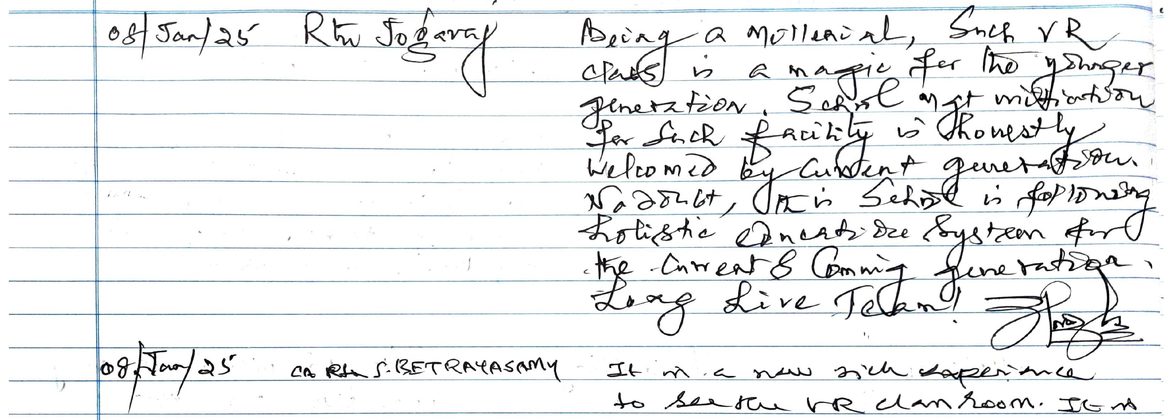 08/Jan/25 Rtn Jogaraj Being a Millenial, Such VR
class is a magic for the younger
generation. School mgt initiation
for Such facility is honestly
Welcomed by Current generation.
No doubt, this School is following
holistic education System for
the Current & Comming generation.
Long Live Team!
08/Jan/25 CA Rtn S. BETRAYASAMY It is a new rich experience
to see the VR classroom. It is